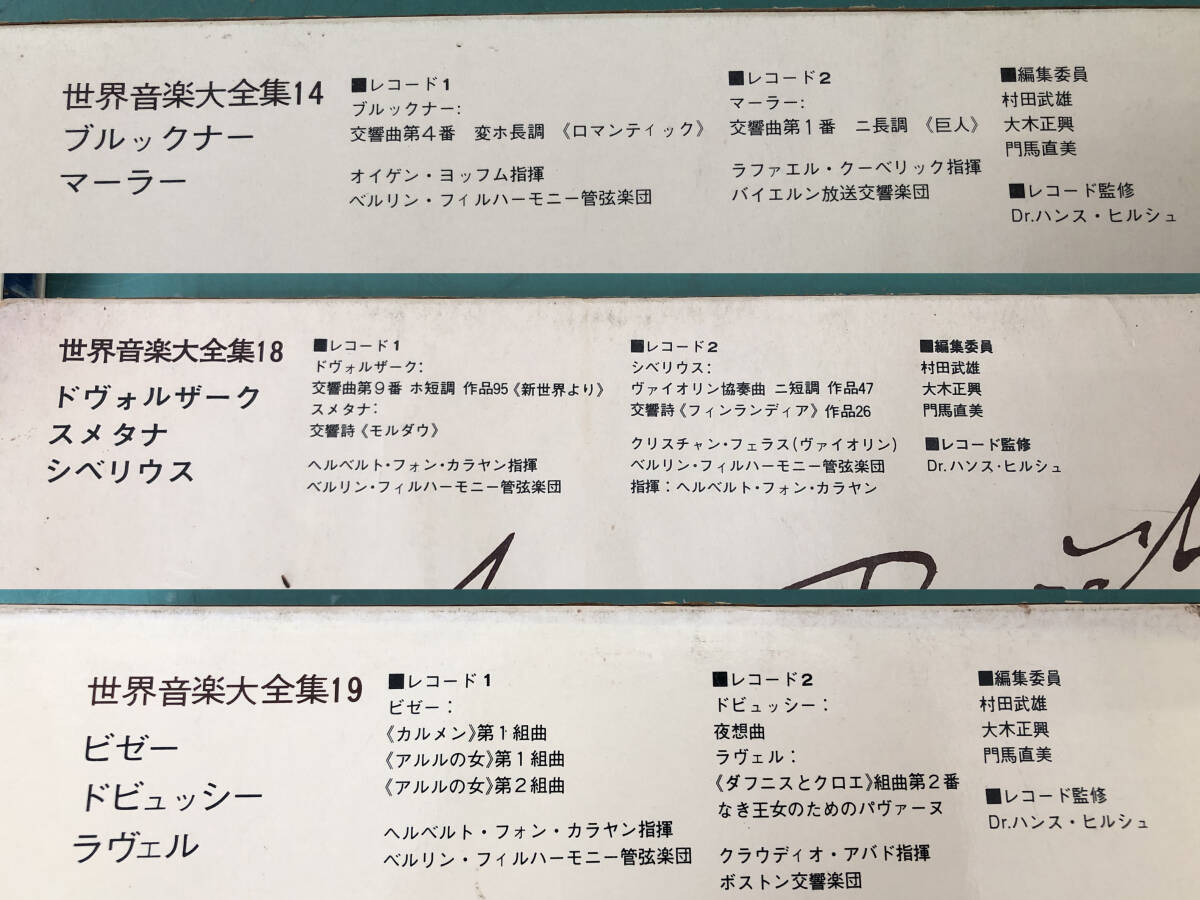 世界音楽大全集14
ブルックナー
マーラー
■レコード1
ブルックナー:
交響曲第4番 変ホ長調 《ロマンティック》
オイゲン・ヨッフム指揮
ベルリン・フィルハーモニー管弦楽団
■レコード2
マーラー:
交響曲第1番 ニ長調 《巨人》
ラファエル・クーベリック指揮
バイエルン放送交響楽団
■編集委員
村田武雄
大木正興
門馬直美
■レコード監修
Dr.ハンス・ヒルシュ
世界音楽大全集18
ドヴォルザーク
スメタナ
シベリウス
■レコード1
ドヴォルザーク:
交響曲第9番 ホ短調 作品95《新世界より》
スメタナ:
交響詩《モルダウ》
ヘルベルト・フォン・カラヤン指揮
ベルリン・フィルハーモニー管弦楽団
■レコード2
シベリウス:
ヴァイオリン協奏曲 ニ短調 作品47
交響詩《フィンランディア》作品26
クリスチャン・フェラス(ヴァイオリン)
ベルリン・フィルハーモニー管弦楽団
指揮:ヘルベルト・フォン・カラヤン
■編集委員
村田武雄
大木正興
門馬直美
■レコード監修
Dr.ハンス・ヒルシュ
世界音楽大全集19
ビゼー
ドビュッシー
ラヴェル
■レコード1
ビゼー:
《カルメン》第1組曲
《アルルの女》第1組曲
《アルルの女》第2組曲
ヘルベルト・フォン・カラヤン指揮
ベルリン・フィルハーモニー管弦楽団
■レコード2
ドビュッシー:
夜想曲
ラヴェル:
《ダフニスとクロエ》組曲第2番
なき王女のためのパヴァーヌ
クラウディオ・アバド指揮
ボストン交響楽団
■編集委員
村田武雄
大木正興
門馬直美
■レコード監修
Dr.ハンス・ヒルシュ